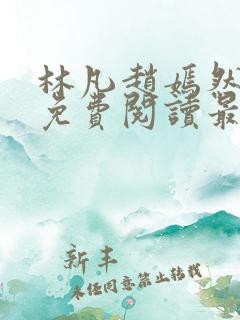 林凡趙嫣然
免費閱讀最
新丰
未经同意禁止转载